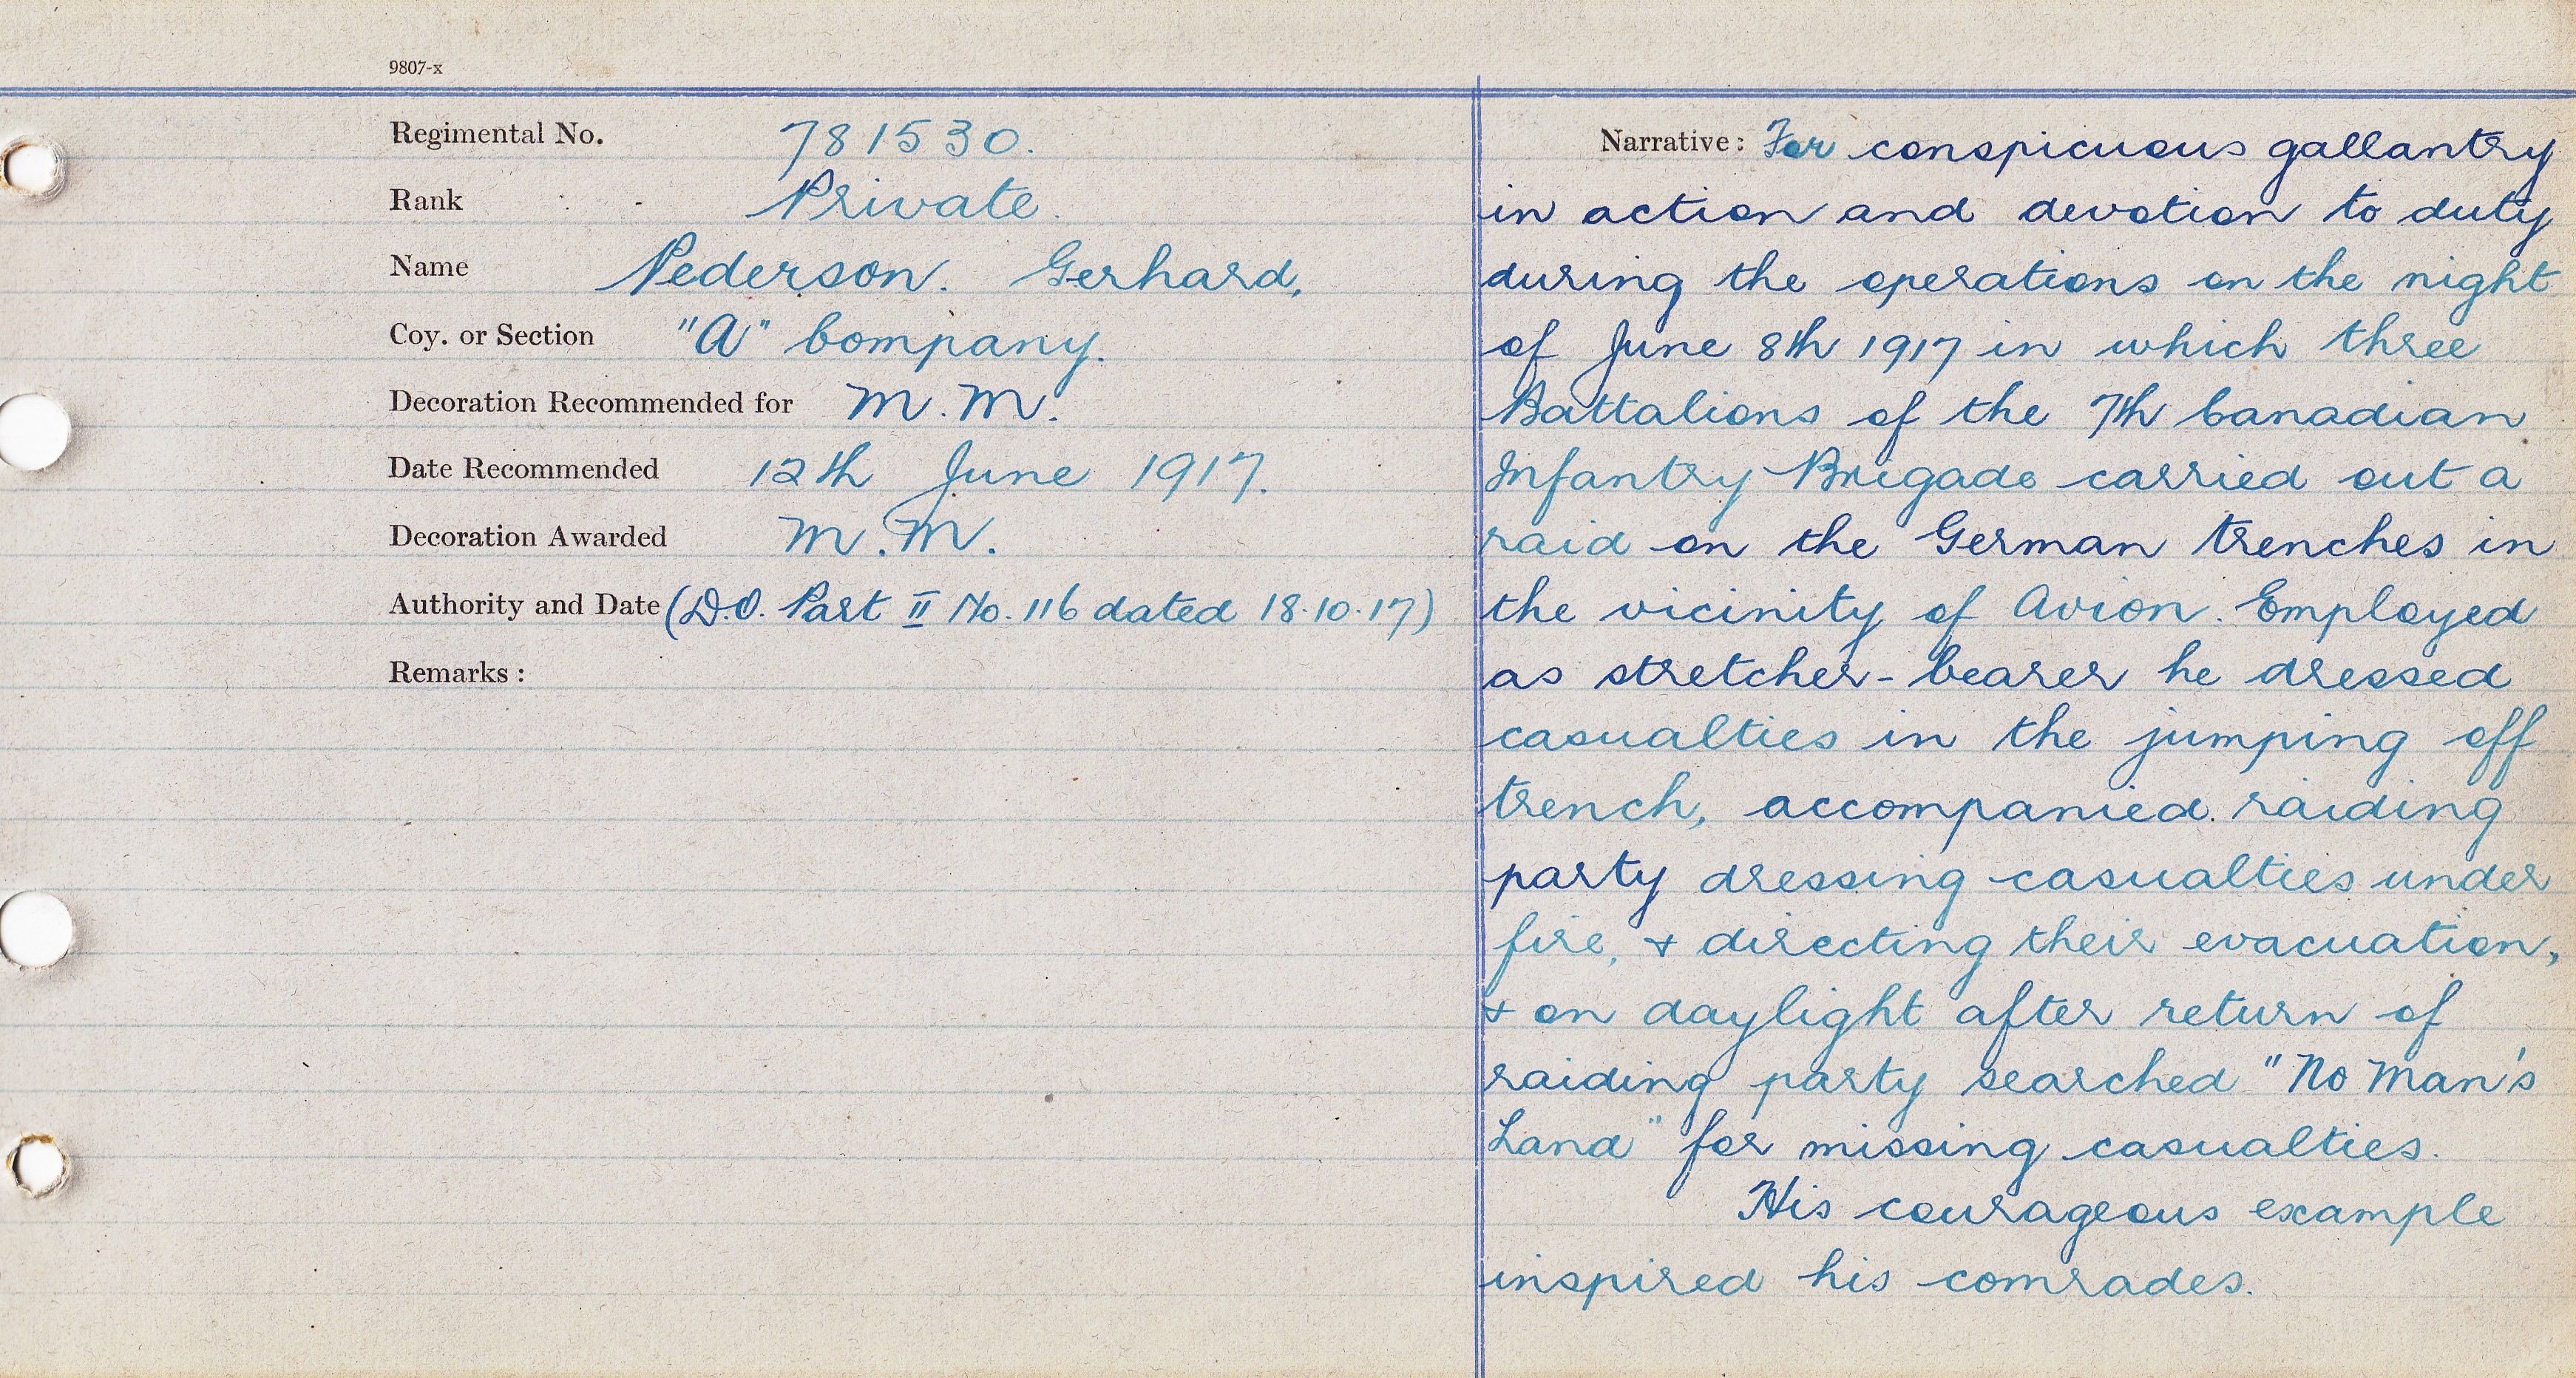 9807-x
Regimental No. 781530.
Rank - Private.
Name Pederson. Gerhard,
Coy. or Section "A" Company.
Decoration Recommended for M.M.
Date Recommended 12th June 1917.
Decoration Awarded M.M.
Authority and Date (D.O. Part II No. 116 dated 18.10.17)
Remarks :
Narrative : For conspicuous gallantry
in action and devotion to duty
during the operations on the night
of June 8th 1917 in which three
Battalions of the 7th Canadian
Infantry Brigade carried out a
raid on the German trenches in
the vicinity of Avion. Employed
as stretcher-bearer he dressed
casualties in the jumping off
trench, accompanied raiding
party dressing casualties under
fire, & directing their evacuation,
& on daylight after return of
raiding party searched "No Man's
Land" for missing casualties.
His courageous example
inspired his comrades.